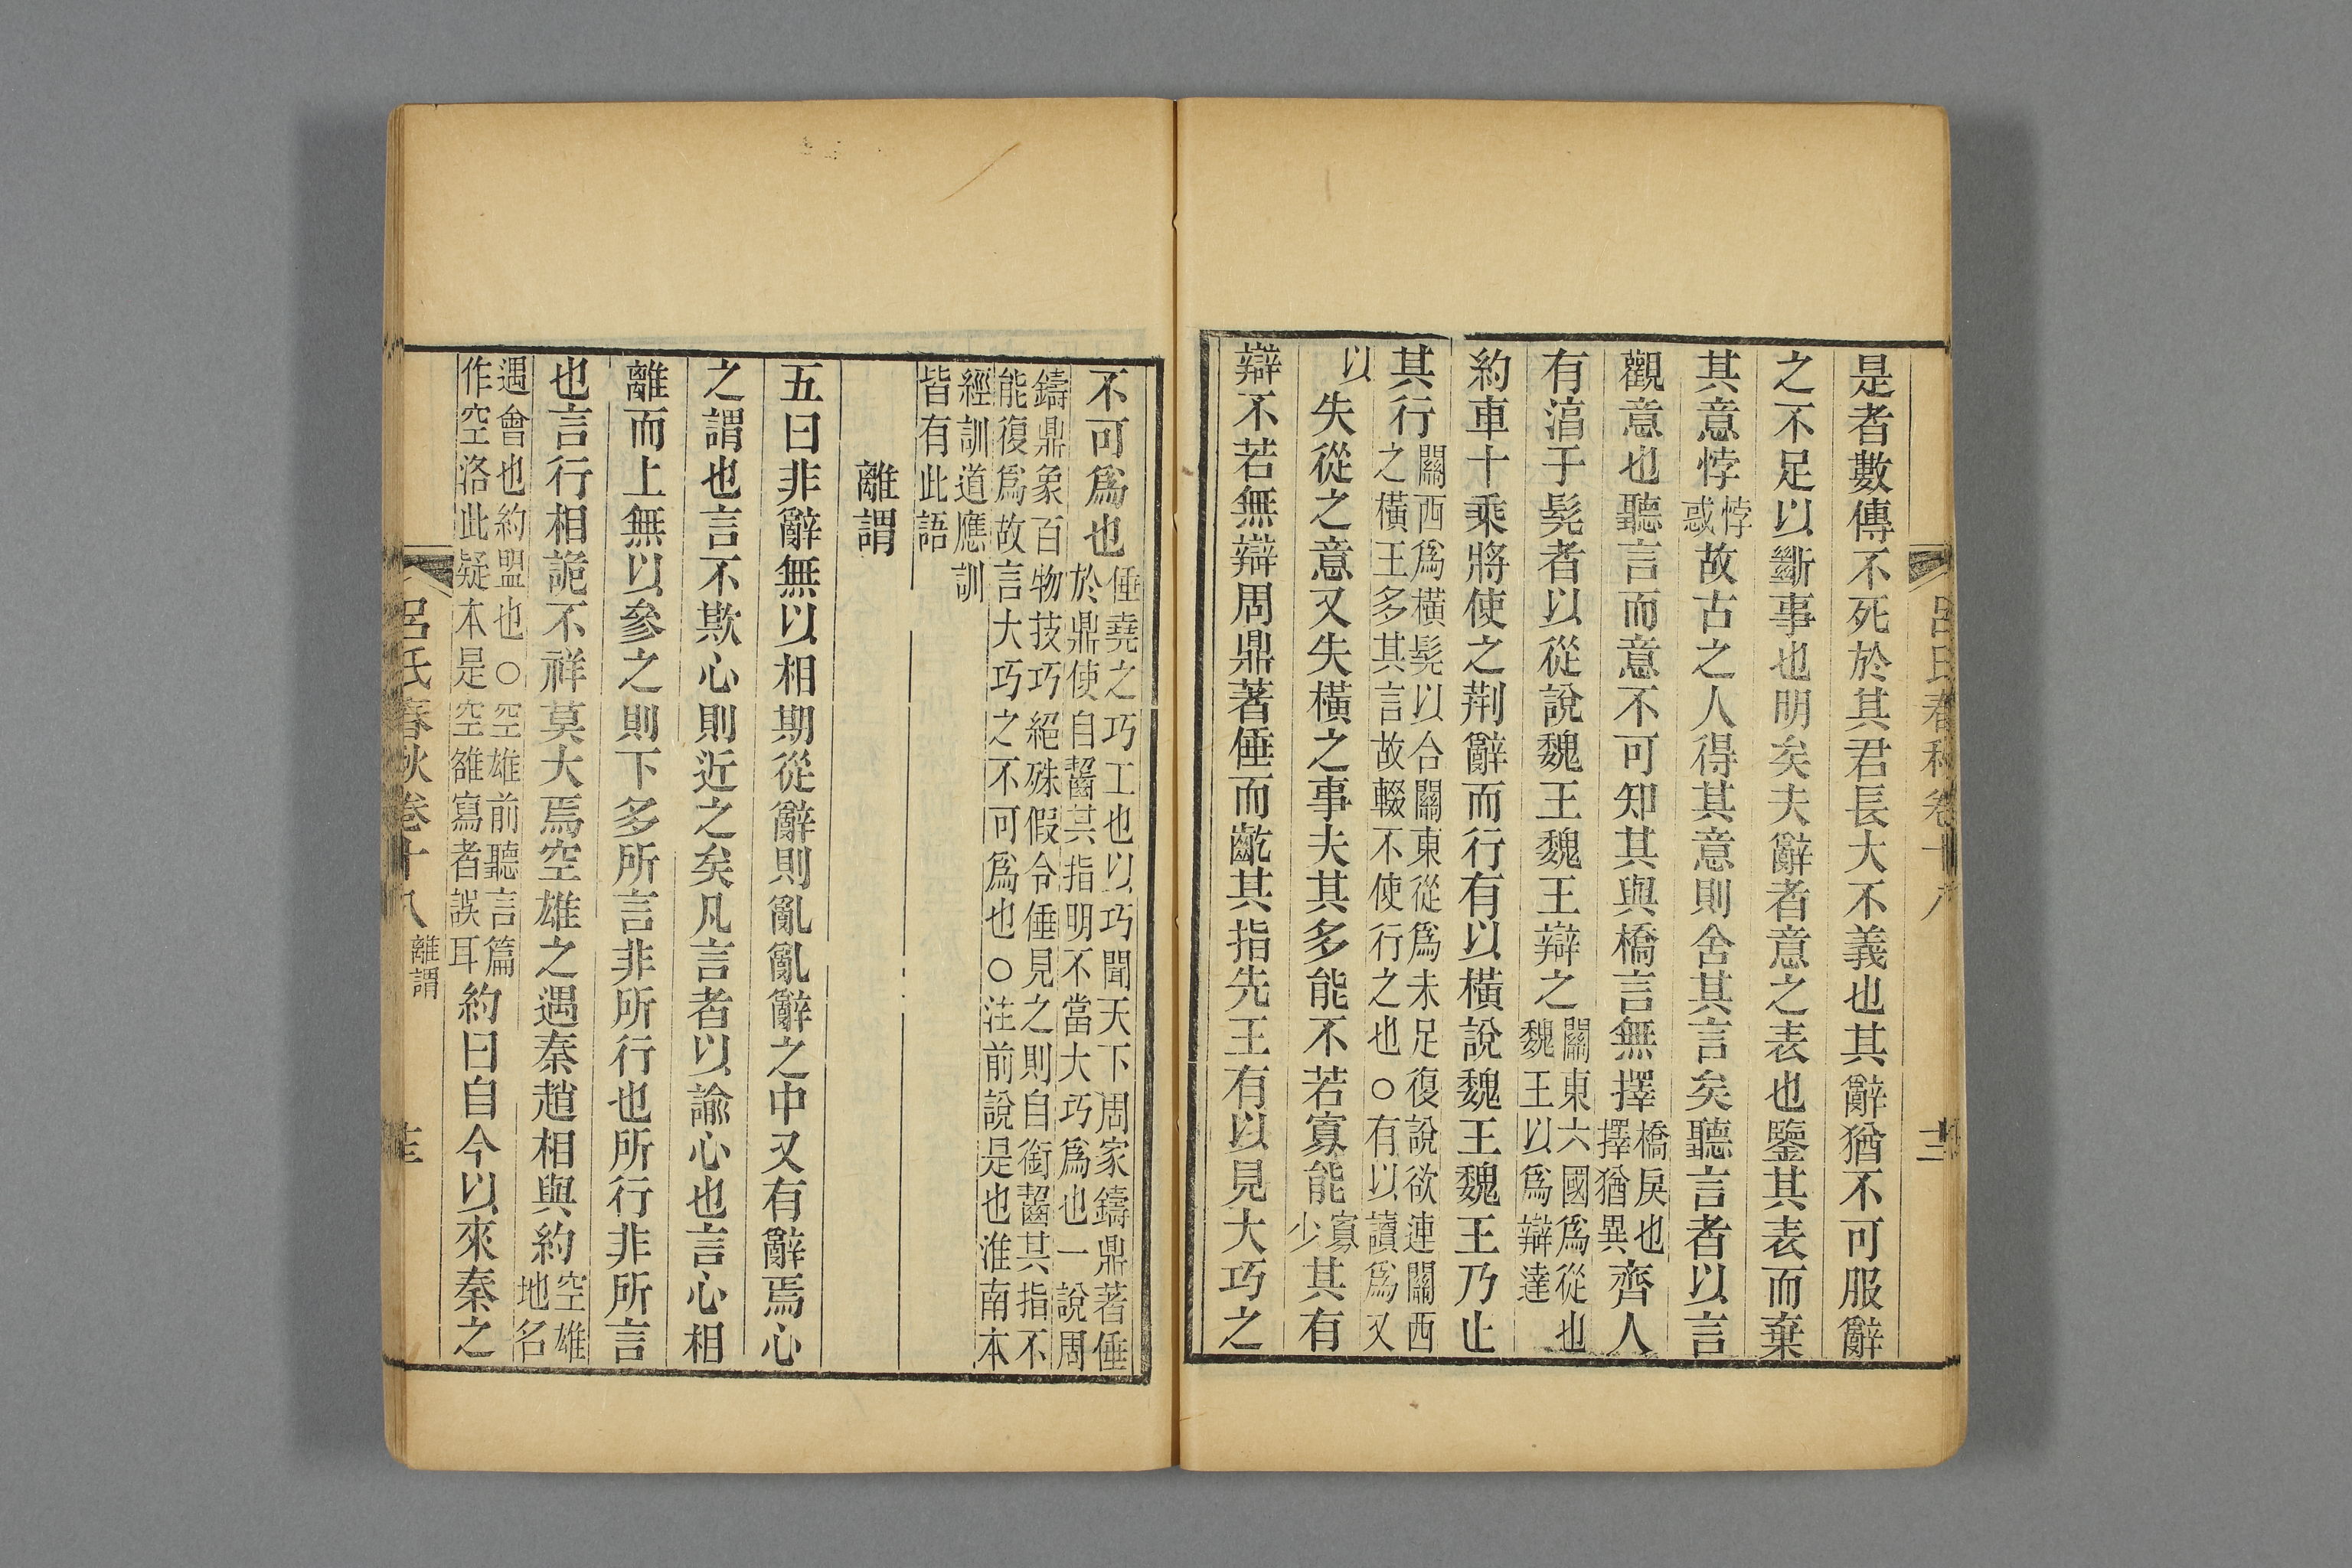 是者數傳不死於其君長大不義也其辭猶不可服辭
之不足以斷事也明矣夫辭者意之表也鑒其表而棄
其意悖悖惑故古之人得其意則舍其言矣聽言者以言
觀意也聽言而意不可知其與橋言無擇橋戾也擇猶異齊人
有淳于髡者以從說魏王魏王辯之關東六國爲從也魏王以爲辯達
約車十乘將使之荆辭而行有以橫說魏王魏王乃止
其行關西爲橫髡以合關東從爲未足復說欲連關西之橫王多其言故輟不使行之也○有以讀爲又
以失從之意又失橫之事夫其多能不若寡能寡少其有
辯不若無辯周鼎著倕而齕其指先王有以見大巧之
呂氏春秋卷十八
不可爲也倕堯之巧工也以巧聞天下周家鑄鼎著倕於鼎使自齧其指明不當大巧爲也一說周
鑄鼎象百物技巧絕殊假令倕見之則自銜齧其指不能復爲故言大巧之不可爲也○注前說是也淮南本
經訓道應訓皆有此語
離謂
五曰非辭無以相期從辭則亂亂辭之中又有辭焉心
之謂也言不欺心則近之矣凡言者以諭心也言心相
離而上無以參之則下多所言非所行也所行非所言
也言行相詭不祥莫大焉空雄之遇秦趙相與約空雄地名
遇會也約盟也○空雄前聽言篇作空洛此疑本是空雒寫者誤耳約曰自今以來秦之
呂氏春秋卷十八 離謂